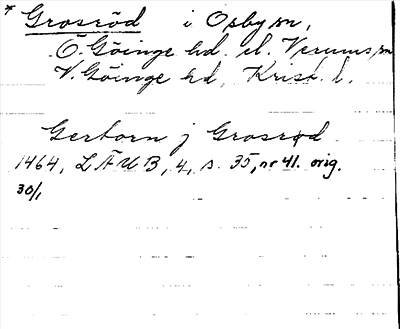 * Grosröd i Osby sn,
Ö. Göinge hd. el. Verums sn
V. Göinge hd, Krist. l.
Gerborn j Grosrød
1464, LÄUB, 4, s. 35, nr 41. orig.
30/1